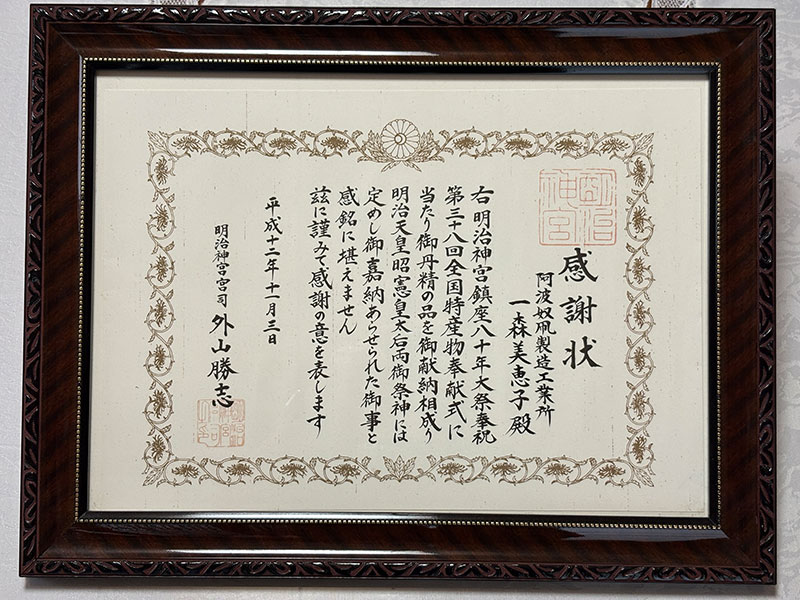 感謝状
阿波奴凧製造工業所
一森美恵子殿
右明治神宮鎮座八十年大祭奉祝
第三十八回全国特産物奉献式に
当たり御丹精の品を御献納相成り
明治天皇昭憲皇太后両御祭神には
定めし御嘉納あらせられた御事と
感銘に堪えません
茲に謹みて感謝の意を表します
平成十二年十一月三日
明治神宮宮司 外山勝志
明治
神宮